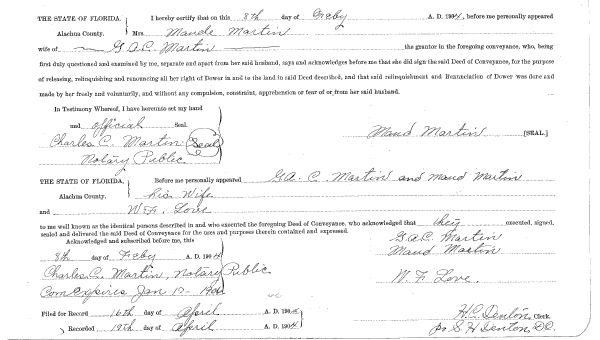 THE STATE OF FLORIDA, I hereby certify that on this 8th day of Feby A. D. 1904, before me personally appeared
Alachua County. Mrs. Maude Martin
wife of G. A. C. Martin the grantor in the foregoing conveyance, who, being
first duly questioned and examined by me, separate and apart from her said husband, says and acknowledges before me that she did sign the said Deed of Conveyance, for the purpose
of releasing, relinquishing and renouncing all her right of Dower in and to the land in said Deed described, and that said relinquishment and Renunciation of Dower was done and
made by her freely and voluntarily, and without any compulsion, constraint, apprehension or fear of or from her said husband.
In Testimony Whereof, I have hereunto set my hand
and official Seal.
Charles C. Martin (Seal) Maud Martin [SEAL.]
Notary Public
THE STATE OF FLORIDA, Before me personally appeared G. A. C. Martin and Maud Martin
Alachua County. his Wife
and W. F. Love
to me well known as the identical persons described in and who executed the foregoing Deed of Conveyance, who acknowledged that they executed, signed,
sealed and delivered the said Deed of Conveyance for the uses and purposes therein contained and expressed.
Acknowledged and subscribed before me, this G. A. C. Martin
8th day of Feby A. D. 1904 Maud Martin
Charles C. Martin, Notary Public W. F. Love.
Com expires Jan 17-
Filed for Record 16th day of April A. D. 1904 H. C. Denton, Clerk.
Recorded 19th day of April A. D. 1904 pr S. H. Denton, D.C.